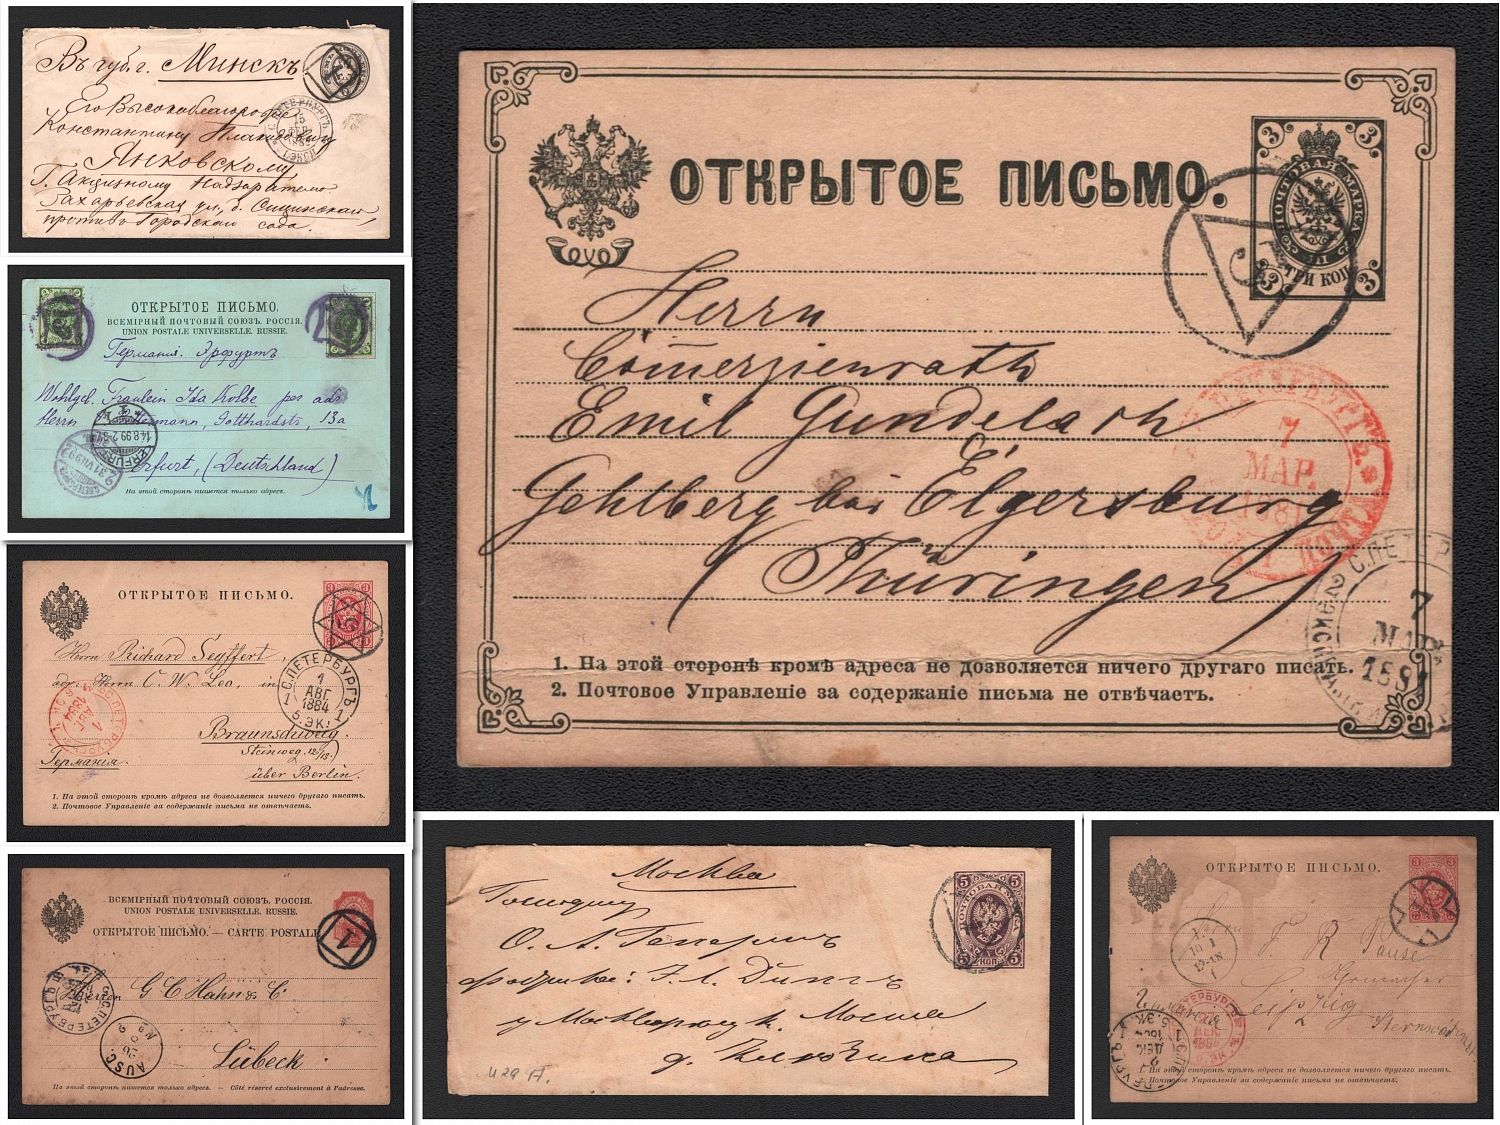 Въ губ. г. Минскъ
Его Высокоблагородію
Константину
Янковскому
Г. Акцизному Надзирателю
Захарьевская ул., д.
противъ Городского сада.
С.ПЕТЕРБУРГЪ
ОТКРЫТОЕ ПИСЬМО.
ВСЕМІРНЫЙ ПОЧТОВЫЙ СОЮЗЪ. РОССІЯ.
UNION POSTALE UNIVERSELLE. RUSSIE.
Германія. Эрфуртъ
Wohlgeb. Fräulein Ida Kolbe per adr.
Herrn Hermann, Gotthardstr, 13a
Erfurt, (Deutschland)
ERFURT
14.8.99.
31 VII 99
На этой сторонѣ пишется только адресъ.
ОТКРЫТОЕ ПИСЬМО.
3 3
3 3
Herrn Richard Seyffert,
adr. Herrn C. W. Leo, in
Braunschweig.
Steinweg. 12/13.
Германія.
über Berlin.
С.ПЕТЕРБУРГЪ
1
АВГ
1884
1 5.ЭК. 1
1. На этой сторонѣ кромѣ адреса не дозволяется ничего другаго писать.
2. Почтовое Управленіе за содержаніе письма не отвѣчаетъ.
ВСЕМІРНЫЙ ПОЧТОВЫЙ СОЮЗЪ. РОССІЯ.
UNION POSTALE UNIVERSELLE. RUSSIE.
ОТКРЫТОЕ ПИСЬМО. — CARTE POSTALE
1
Herren G C Hahn & Cº
Lübeck.
С.ПЕТЕРБУРГЪ
AUSG.
Nº 2
На этой сторонѣ пишется только адресъ. — Côté réservé exclusivement à l'adresse.
ОТКРЫТОЕ ПИСЬМО.
3 3
ПОЧТОВАЯ МАРКА
ТРИ КОП.
3 3
5
Herrn
Comerzienrath
Emil Gundelach
Gehlberg bei Elgersburg
Thüringen
С.ПЕТЕРБУРГЪ
7
МАР.
1881
С.ПЕТЕР
7
МАР.
1881
1. На этой сторонѣ кромѣ адреса не дозволяется ничего другаго писать.
2. Почтовое Управленіе за содержаніе письма не отвѣчаетъ.
Москва
Господину
О. А. Гагаринъ
фабрика:
у Москворецк. Моста
5 5
ПОЧТОВАЯ МАРКА
5 КОП. 5
ОТКРЫТОЕ ПИСЬМО.
3 3
Leipzig
10 1
12-1N
ДЕК
1. На этой сторонѣ кромѣ адреса не дозволяется ничего другаго писать.
2. Почтовое Управленіе за содержаніе письма не отвѣчаетъ.